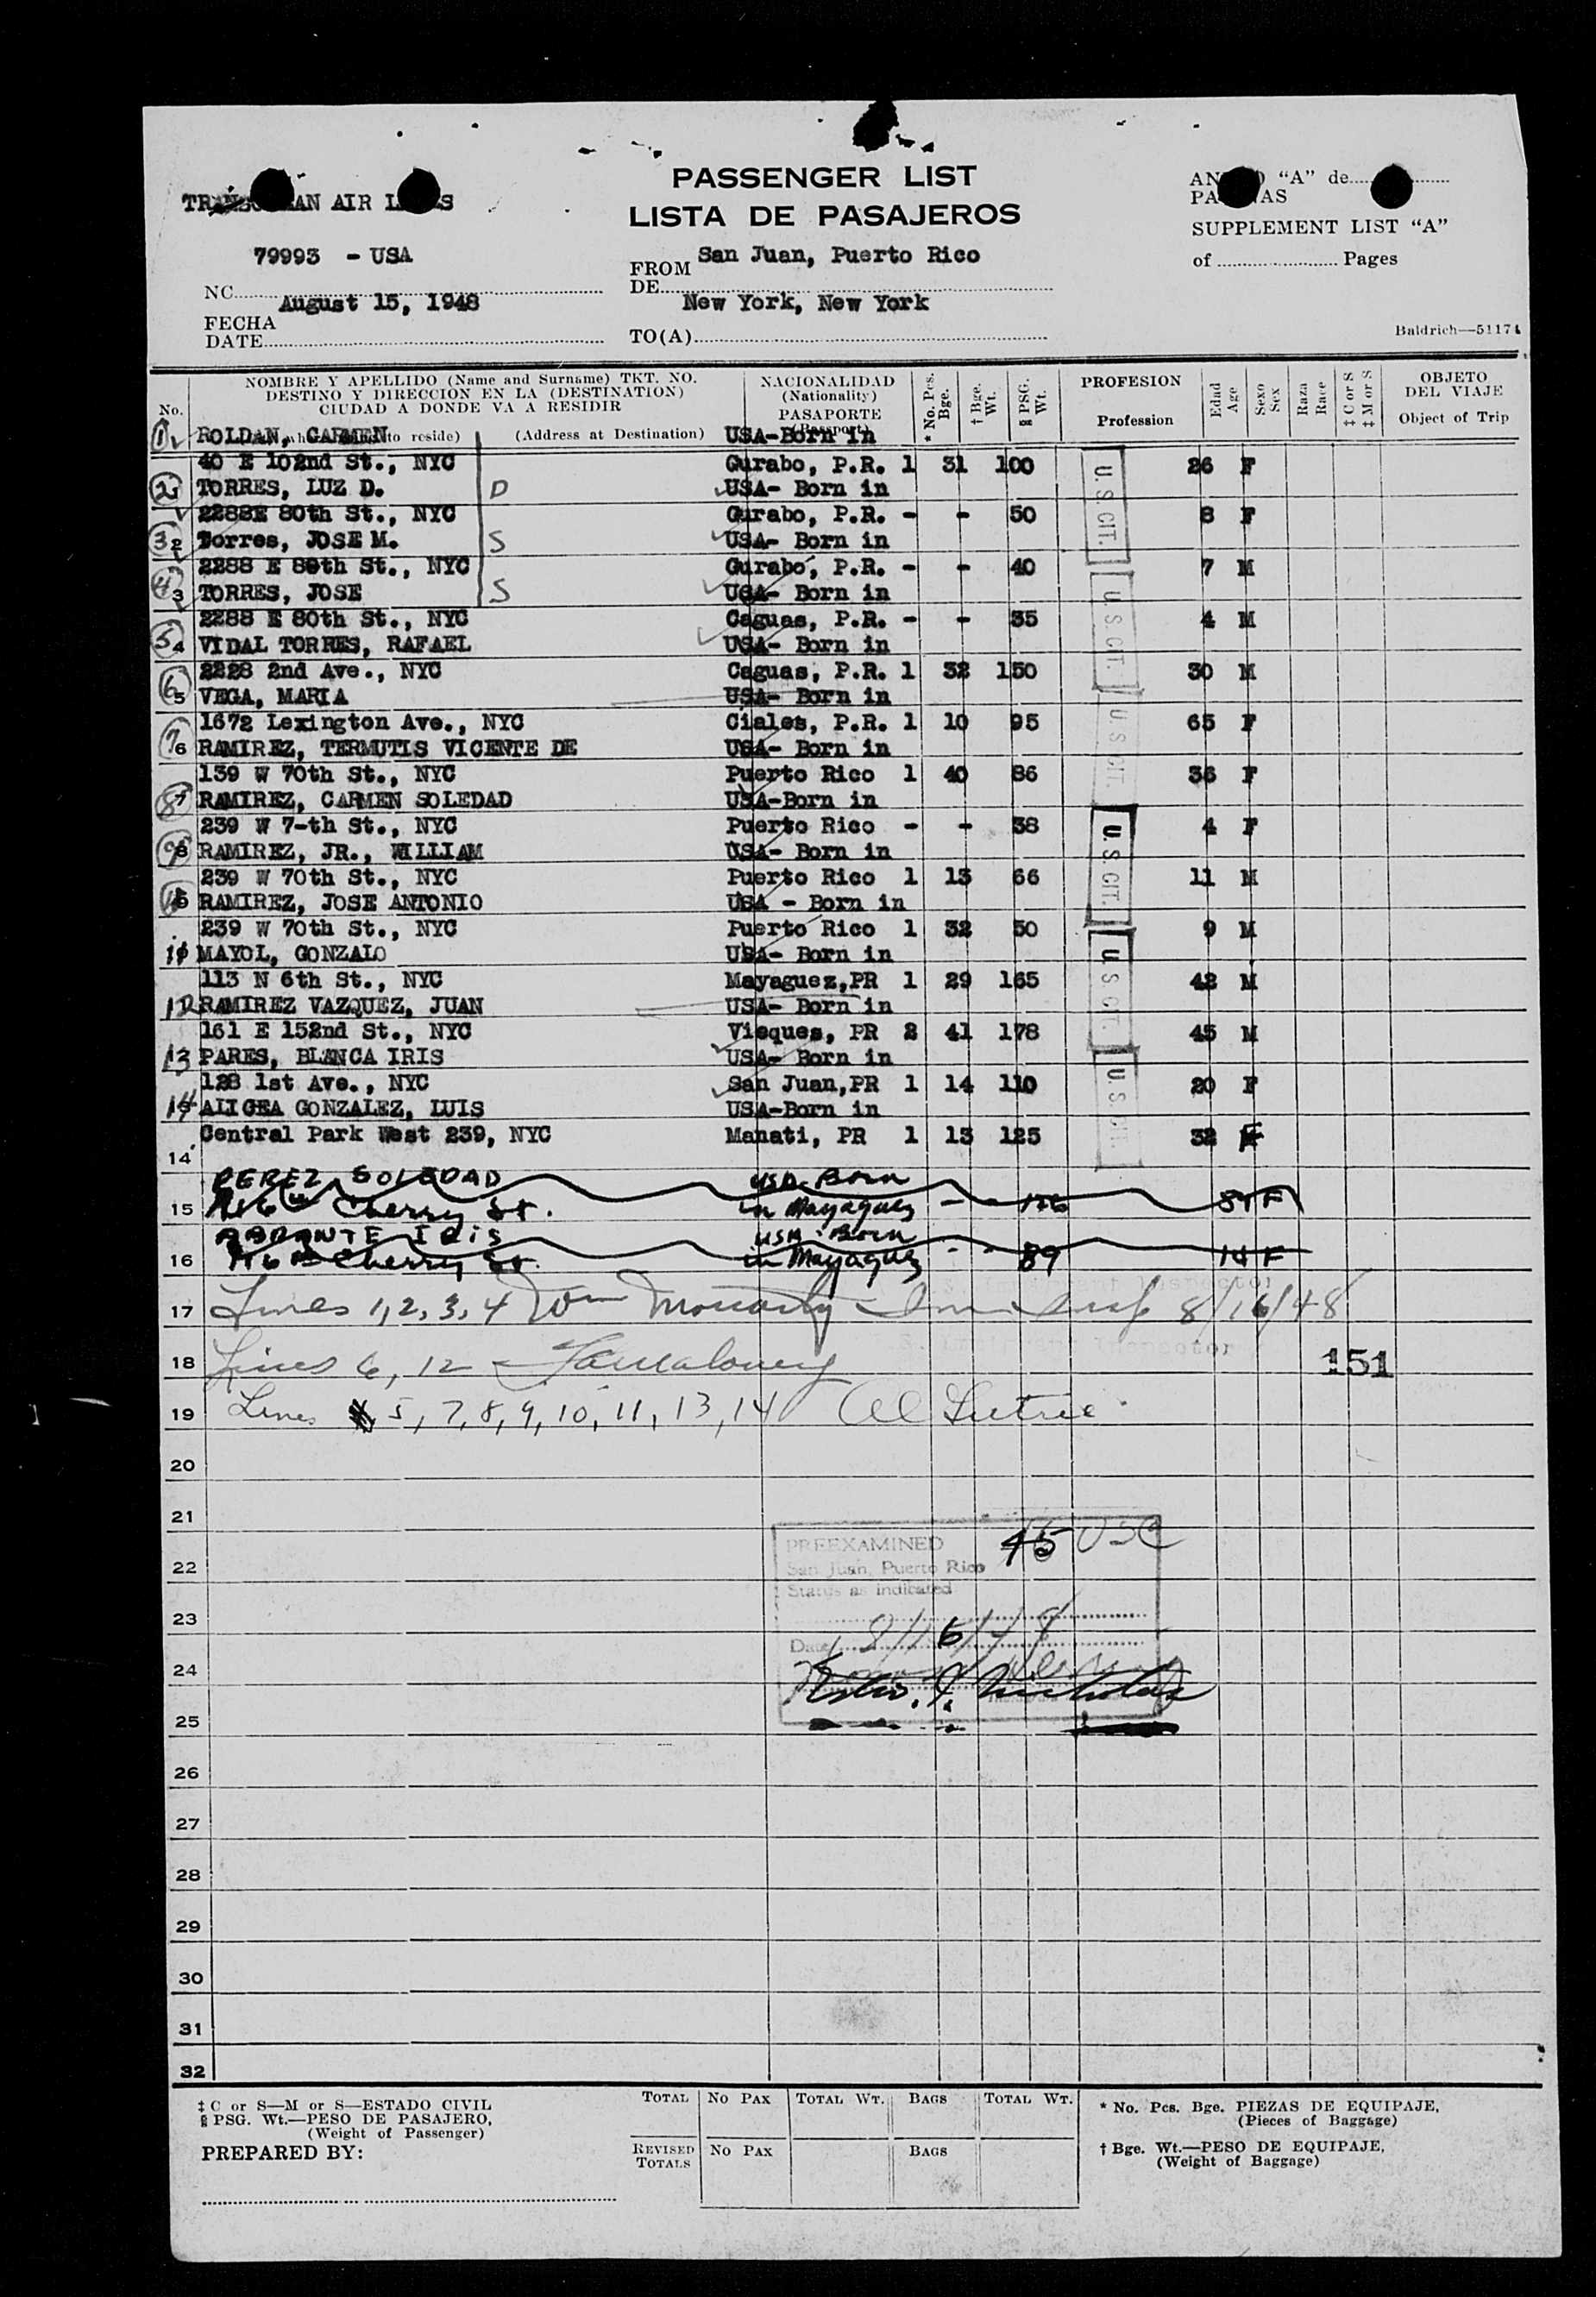 PASSENGER LIST
LISTA DE PASAJEROS
AIR
79993 - USA
NC
August 15, 1948
FECHA
DATE
FROM San Juan, Puerto Rico
DE
New York, New York
TO(A)
"A" de
SUPPLEMENT LIST "A"
of Pages
Baldrich—51174
No.
NOMBRE Y APELLIDO (Name and Surname) TKT. NO.
DESTINO Y DIRECCION EN LA (DESTINATION)
CIUDAD A DONDE VA A RESIDIR
to reside) (Address at Destination)
NACIONALIDAD
(Nationality)
PASAPORTE
(Passport)
* No. Pcs. Bge.
† Bge. Wt.
PSG. Wt.
PROFESION
Profession
Edad Age
Sexo Sex
Raza Race
‡ C or S
‡ M or S
OBJETO DEL VIAJE
Object of Trip
1 ROLDAN, CARMEN USA-Born in
40 E 102nd St., NYC Gurabo, P.R. 1 31 100 26 F
2 TORRES, LUZ D. D USA- Born in
2288E 80th St., NYC Gurabo, P.R. - - 50 8 F
3 2 Torres, JOSE M. S USA- Born in
2288 E 80th St., NYC Gurabo, P.R. - - 40 7 M
4 3 TORRES, JOSE S USA- Born in
2288 E 80th St., NYC Caguas, P.R. - - 35 4 M
5 4 VIDAL TORRES, RAFAEL USA- Born in
2228 2nd Ave., NYC Caguas, P.R. 1 32 150 30 M
6 5 VEGA, MARIA USA- Born in
1672 Lexington Ave., NYC Ciales, P.R. 1 10 95 65 F
7 6 RAMIREZ, TERMUTIS VICENTE DE USA- Born in
139 W 70th St., NYC Puerto Rico 1 40 86 36 F
8 7 RAMIREZ, CARMEN SOLEDAD USA-Born in
239 W 7-th St., NYC Puerto Rico - - 38 4 F
9 8 RAMIREZ, JR., WILLIAM USA- Born in
239 W 70th St., NYC Puerto Rico 1 13 66 11 M
10 RAMIREZ, JOSE ANTONIO USA - Born in
239 W 70th St., NYC Puerto Rico 1 32 50 9 M
11 MAYOL, GONZALO USA- Born in
113 N 6th St., NYC Mayaguez,PR 1 29 165 42 M
12 RAMIREZ VAZQUEZ, JUAN USA- Born in
161 E 152nd St., NYC Vieques, PR 2 41 178 45 M
13 PARES, BLANCA IRIS USA- Born in
128 1st Ave., NYC San Juan,PR 1 14 110 20 F
14 ALICEA GONZALEZ, LUIS USA-Born in
Central Park West 239, NYC Manati, PR 1 13 125 32
U.S. CIT.
U.S. CIT.
U.S. CIT.
U.S. CIT.
U.S. CIT.
U.S. CIT.
14
PEREZ SOLEDAD USA-Born
15 Cherry St. in Mayaguez - - F
IRIS USA-Born
16 Cherry St. in Mayaguez - - 89 14 F
17 Lines 1,2,3,4 Wm Moriarty 8/16/48
18 Lines 6, 12 151
19 Lines 5, 7, 8, 9, 10, 11, 13, 14
20
21
22
23
24
25
26
27
28
29
30
31
32
PREEXAMINED 15 USC
San Juan, Puerto Rico
Status as indicated
Date 8/16/48
‡ C or S—M or S—ESTADO CIVIL
PSG. Wt.—PESO DE PASAJERO,
(Weight of Passenger)
PREPARED BY:
TOTAL NO PAX TOTAL WT. BAGS TOTAL WT.
REVISED TOTALS NO PAX BAGS
* No. Pcs. Bge. PIEZAS DE EQUIPAJE,
(Pieces of Baggage)
† Bge. Wt.—PESO DE EQUIPAJE,
(Weight of Baggage)